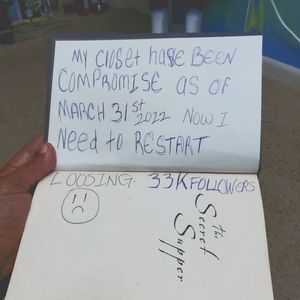 My Closet HASE BEEN
COMPROMISE AS OF
MARCH 31ST 2022 NOW I
Need to RESTART
LOOSING. 33K FOLLOWERS
the
Secret
Supper